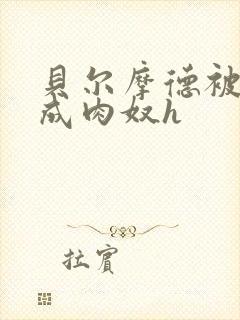 貝尔摩德被
成肉奴h
拉賓